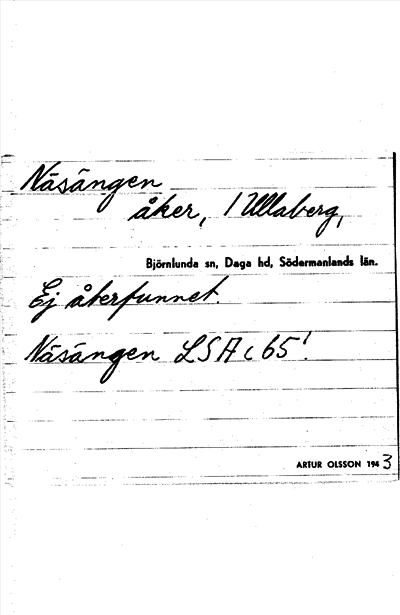 Näsängen
åker, 1 Ullaberg,
Björnlunda sn, Daga hd, Södermanlands län.
Ej återfunnet.
Näsängen LSA c 65¹.
ARTUR OLSSON 1943